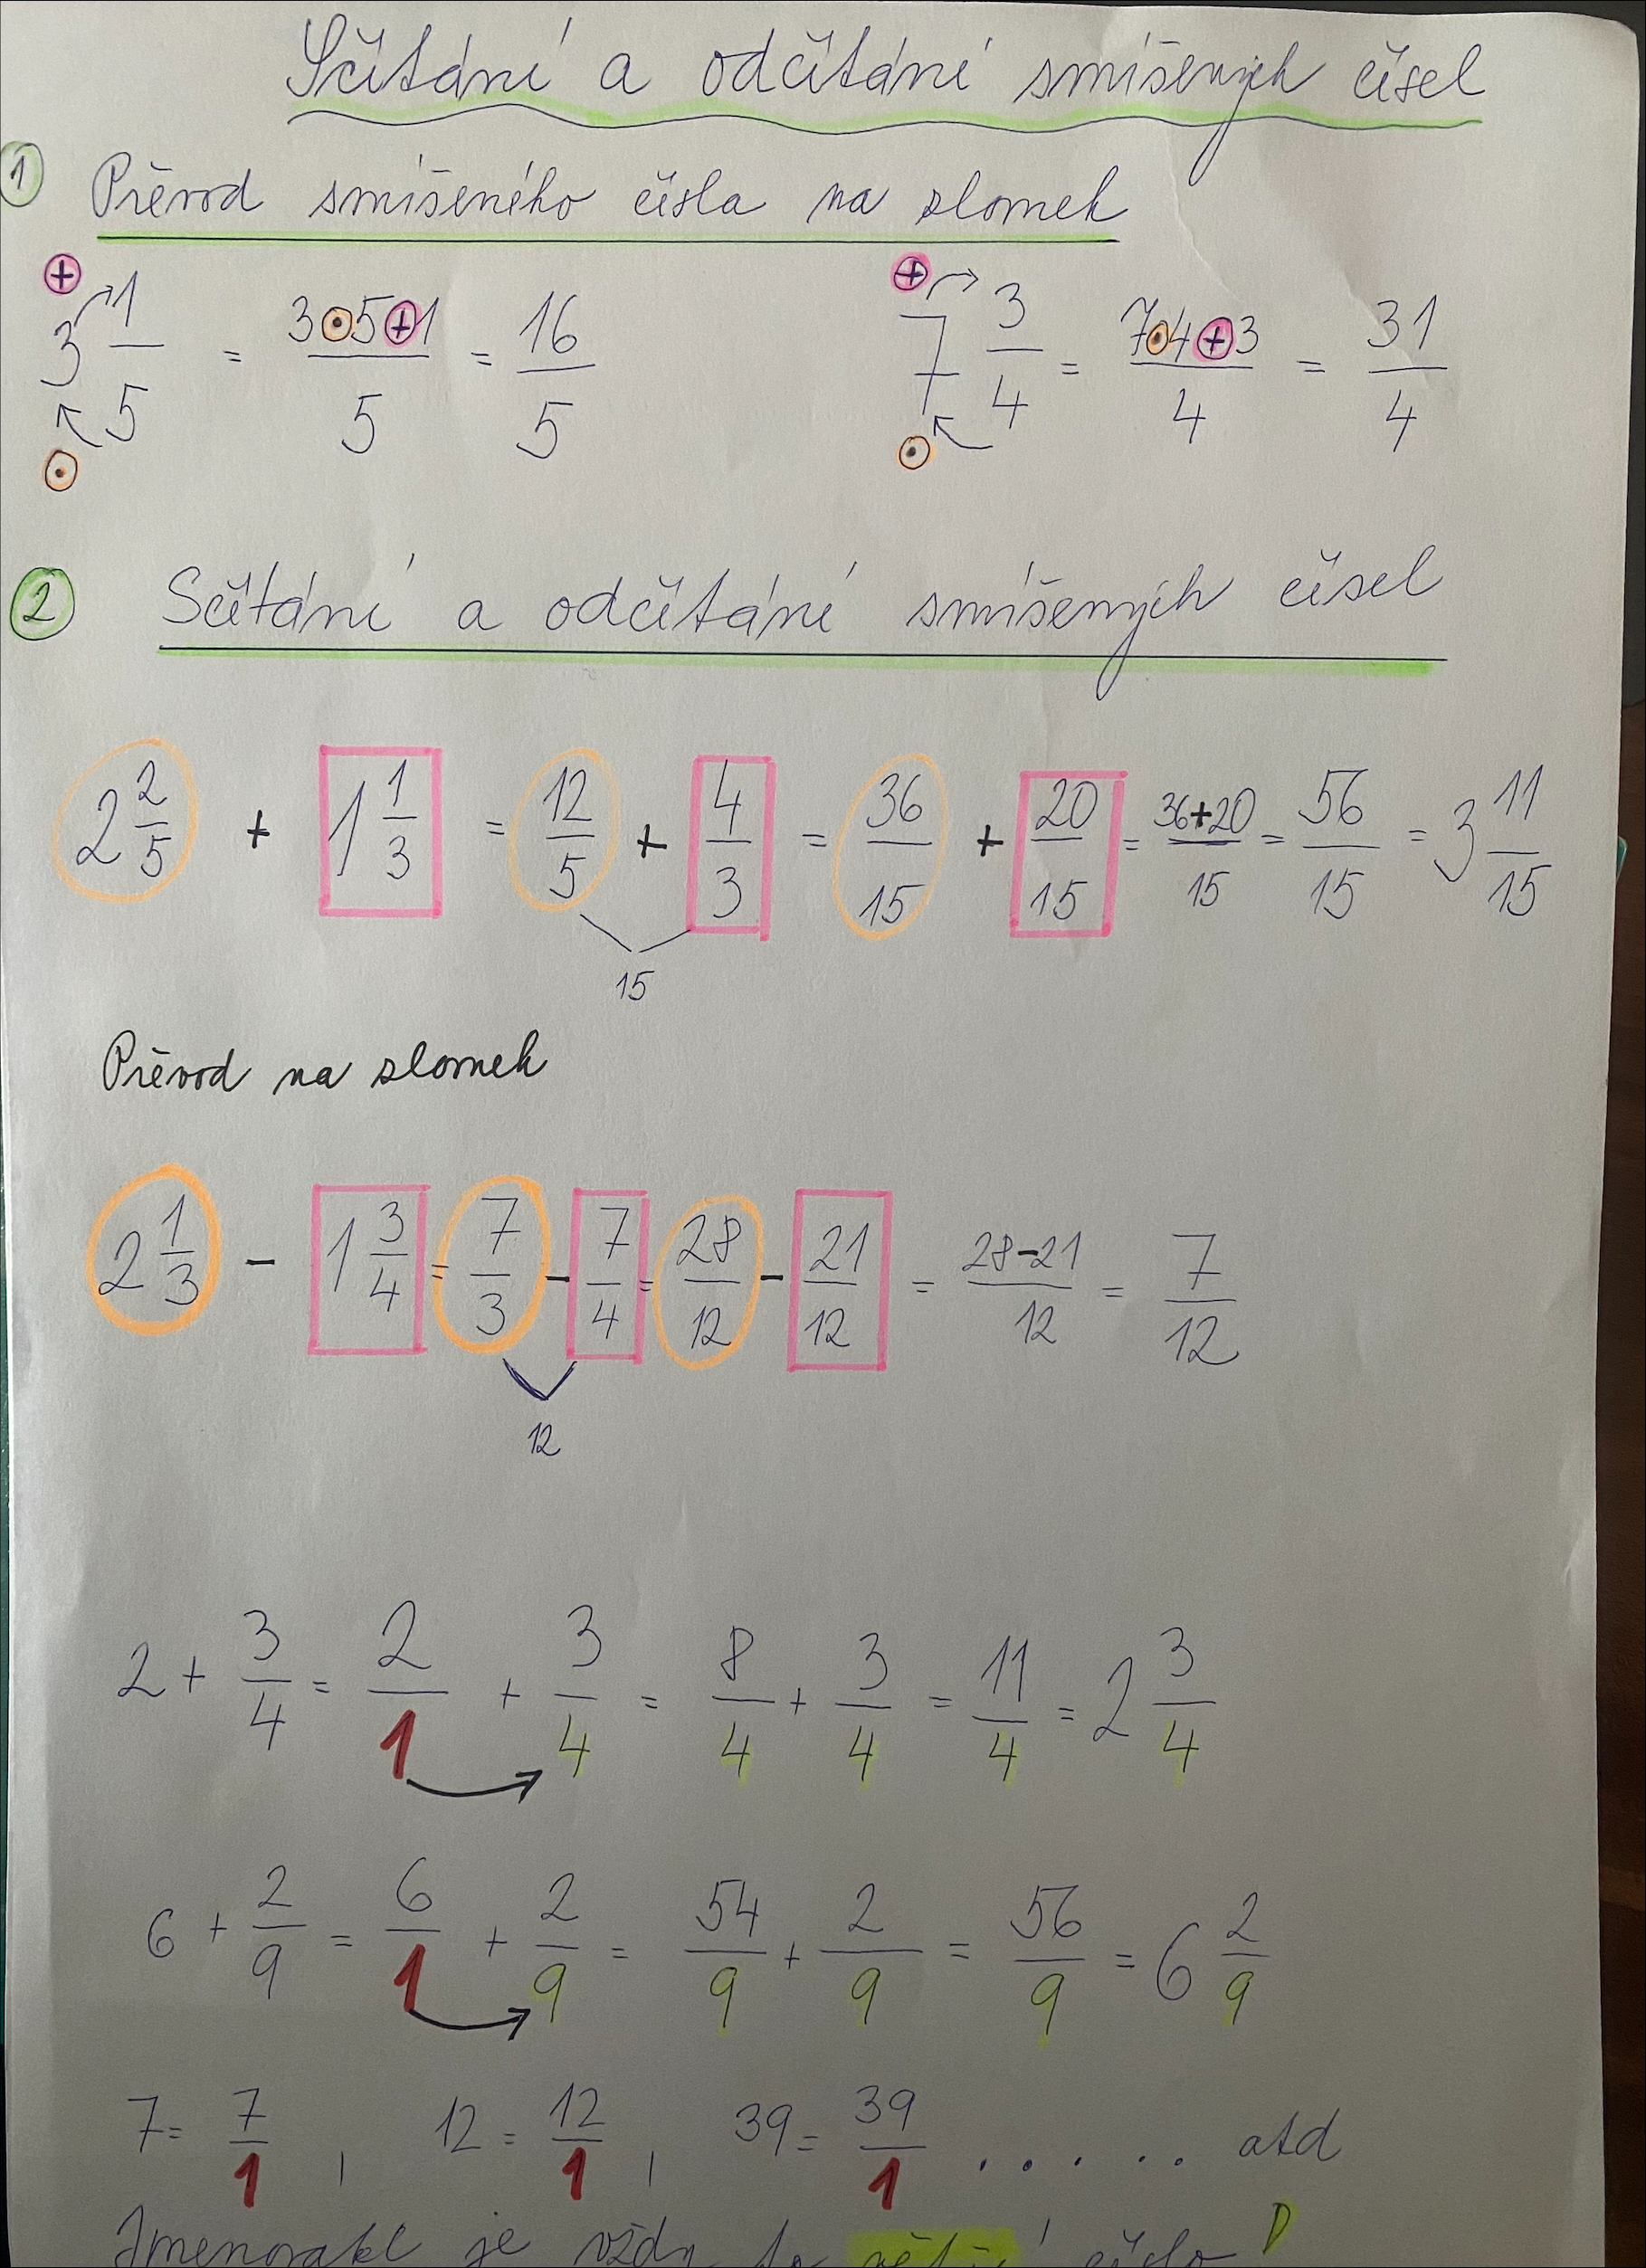 Sčítání a odčítání smíšených čísel
1 Převod smíšeného čísla na zlomek
3 1/5 = 3·5+1/5 = 16/5 7 3/4 = 7·4+3/4 = 31/4
2 Sčítání a odčítání smíšených čísel
2 2/5 + 1 1/3 = 12/5 + 4/3 = 36/15 + 20/15 = 36+20/15 = 56/15 = 3 11/15
15
Převod na zlomek
2 1/3 - 1 3/4 = 7/3 - 7/4 = 28/12 - 21/12 = 28-21/12 = 7/12
12
2 + 3/4 = 2/1 + 3/4 = 8/4 + 3/4 = 11/4 = 2 3/4
6 + 2/9 = 6/1 + 2/9 = 54/9 + 2/9 = 56/9 = 6 2/9
7 = 7/1 , 12 = 12/1 , 39 = 39/1 ..... atd
Jmenovatel je vždy to větší číslo